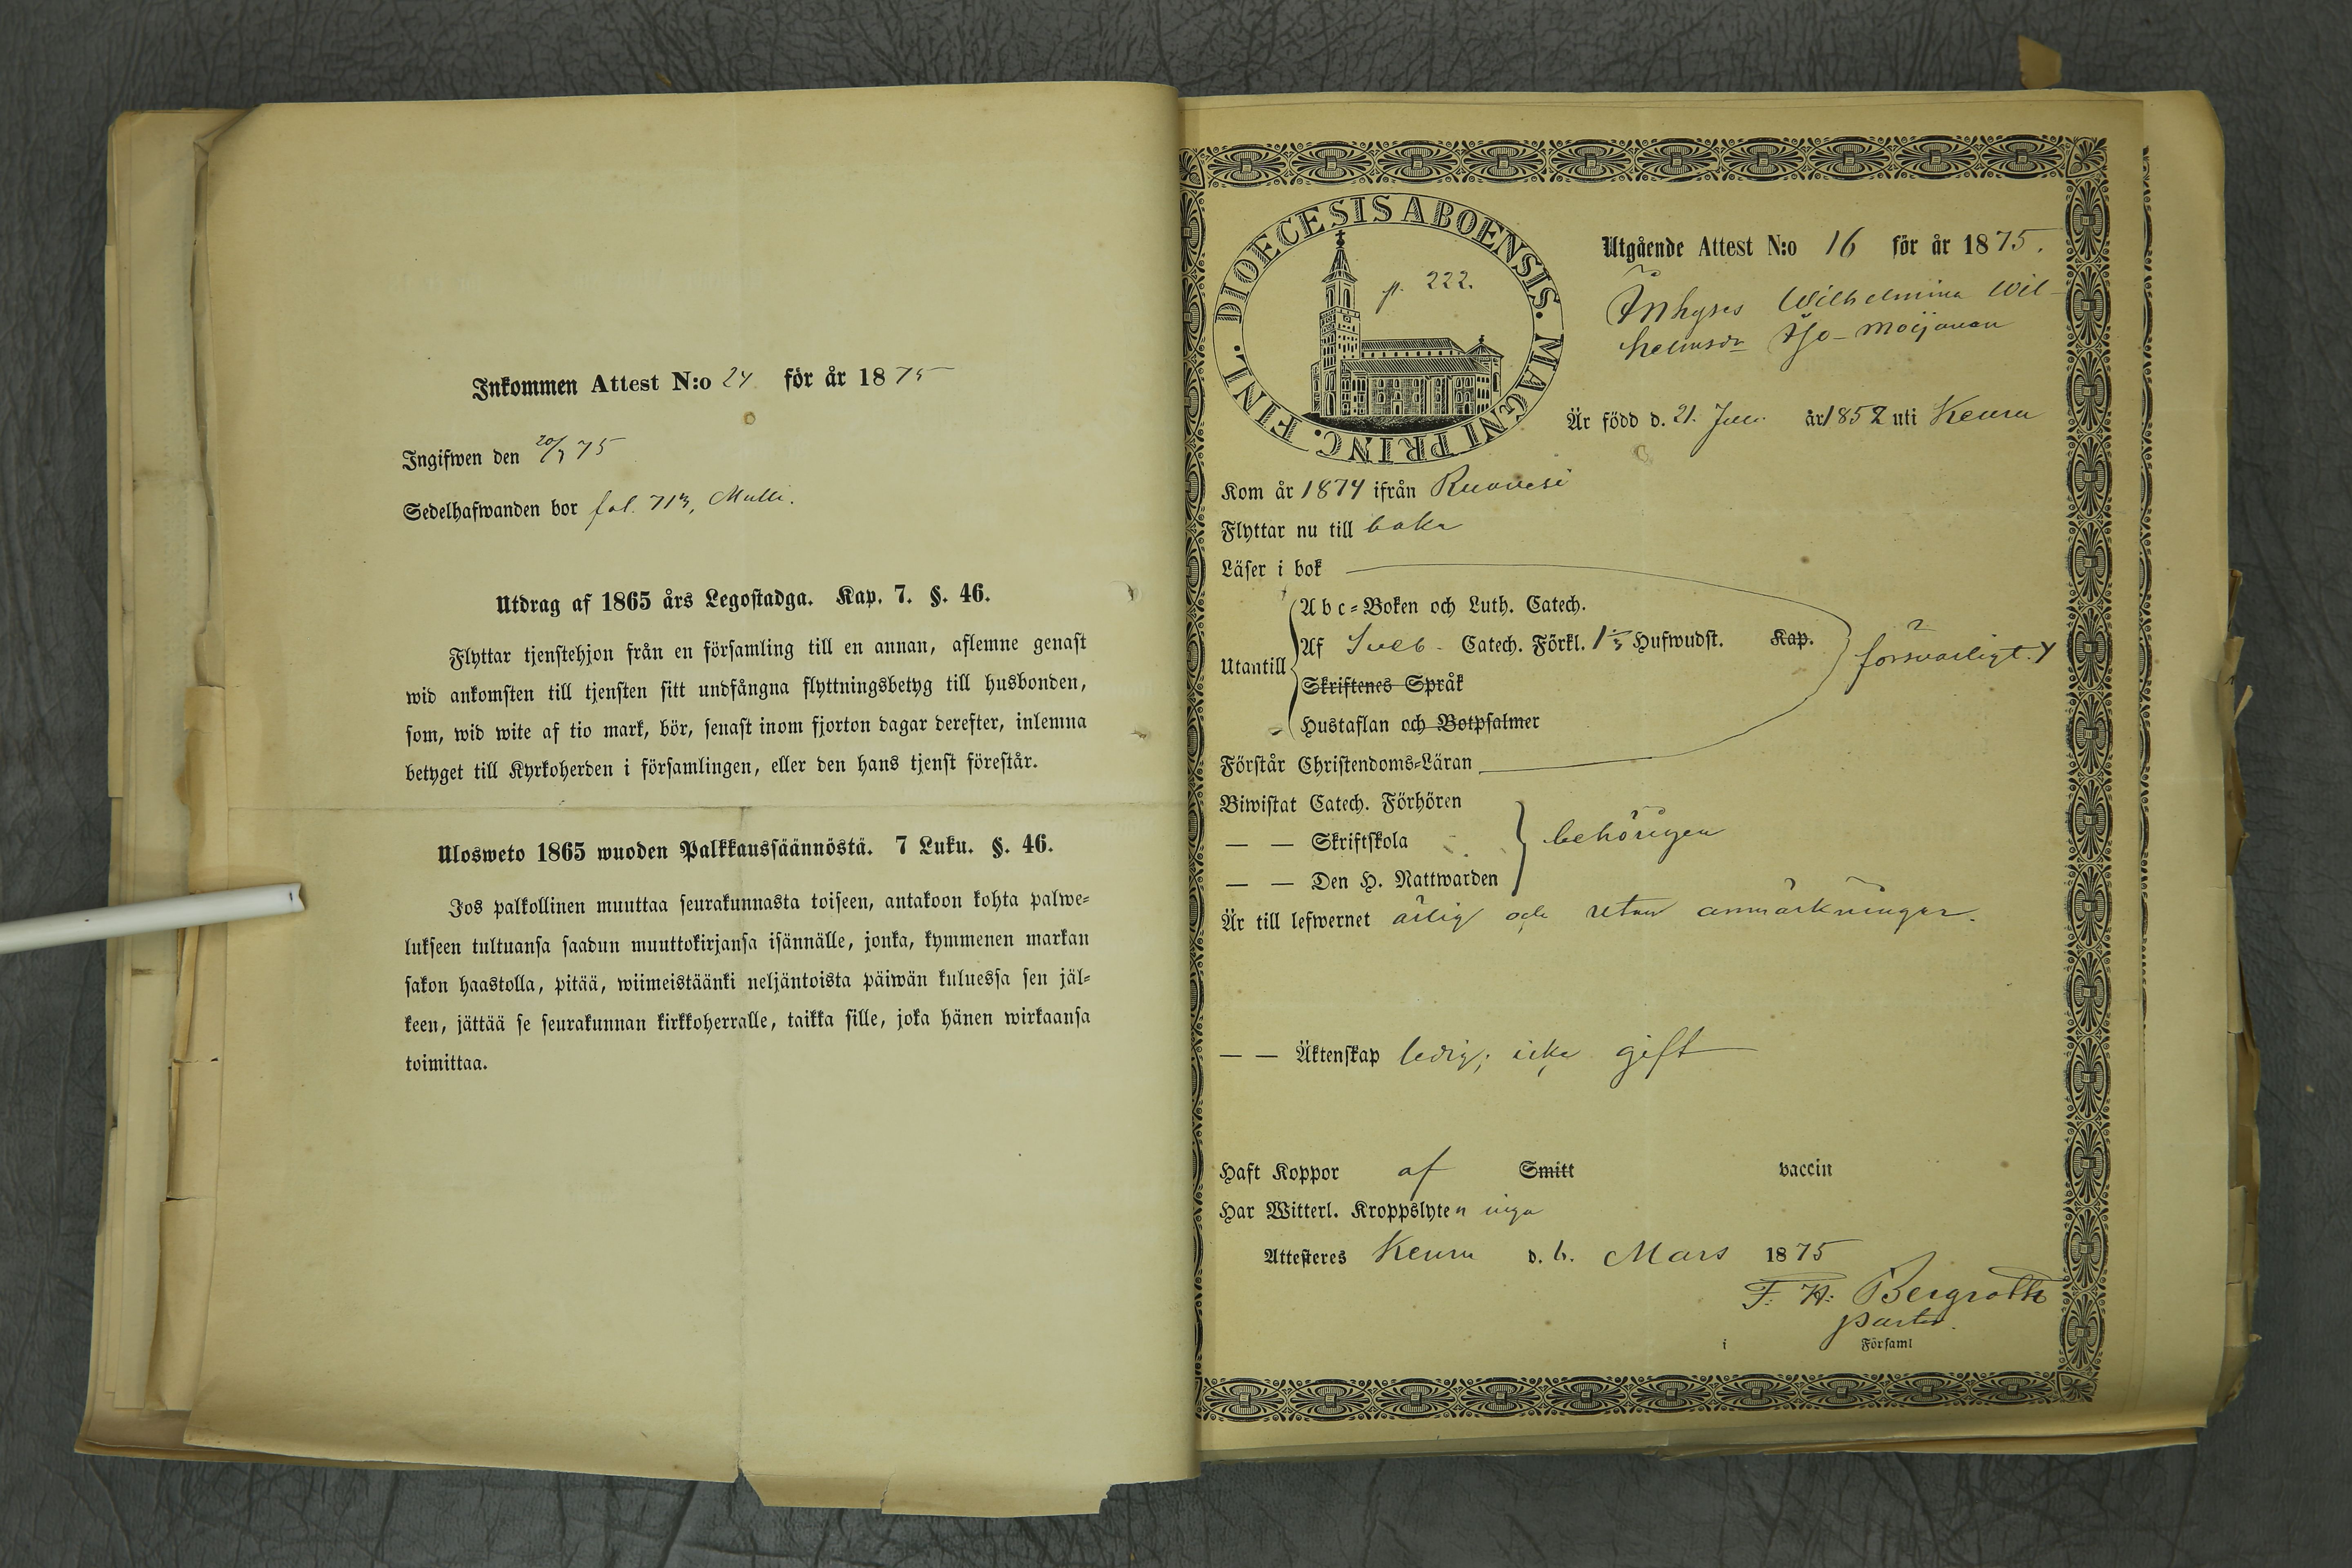 Inkommen Attest N:o 24 för år 1875
Ingifwen den 20/3 75
Sedelhafwanden bor fol. 713, Multi.
Utdrag af 1865 års Legostadga. Kap. 7. §. 46.
Flyttar tjenstehjon från en församling till en annan, aflemne genast
wid ankomsten till tjensten sitt undfångna flyttningsbetyg till husbonden,
som, wid wite af tio mark, bör, senast inom fjorton dagar derefter, inlemna
betyget till Kyrkoherden i församlingen, eller den hans tjenst förestår.
Ulosweto 1865 wuoden Palkkaussäännöstä. 7 Luku. §. 46.
Jos palkollinen muuttaa seurakunnasta toiseen, antakoon kohta palwe=
lukseen tultuansa saadun muuttokirjansa isännälle, jonka, kymmenen markan
sakon haastolla, pitää, wiimeistäänki neljäntoista päiwän kuluessa sen jäl=
keen, jättää se seurakunnan kirkkoherralle, taikka sille, joka hänen wirkaansa
toimittaa.
DIOECESIS ABOENSIS. MAGNI PRINC. FINL.
p. 222.
Utgående Attest N:o 16 för år 1875.
Inhyses Wilhelmina Wil-
helmsdr
Är född d. 21. år 1852 uti Keuru
Kom år 1874 ifrån Ruovesi
Flyttar nu till baka
Läser i bok
Abc=Boken och Luth. Catech.
Utantill
Af Sveb. Catech. Förkl. 1-3 Hufwudst. Kap.
försvarligt.
Skriftenes Språk
Hustaflan och Botpsalmer
Förstår Christendoms=Läran
Biwistat Catech. Förhören
— — Skriftskola
behörigen
— — Den H. Nattwarden
Är till lefwernet ärlig och utan anmärkningar.
— — Äktenskap ledig; icke gift
Haft Koppor af Smitt vaccin
Har Witterl. Kroppslyten inga
Attesteres Keuru d. 6. Mars 1875
F. H. Bergroth
pastor.
i Församl